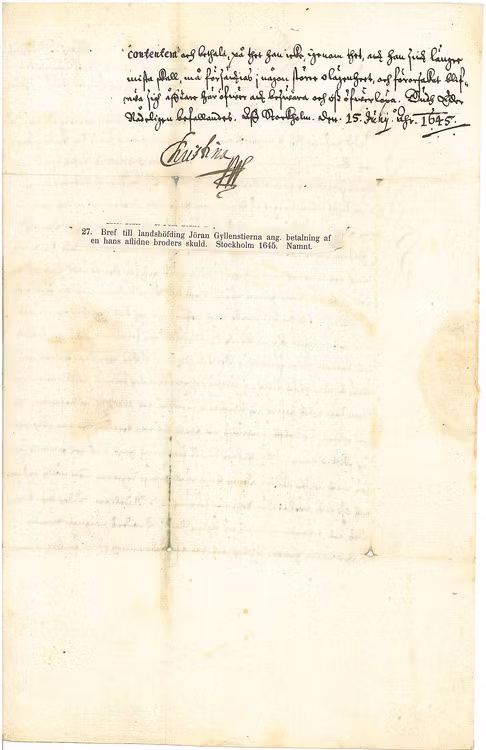 contentera och bethalt, på thet han icke, igenom thet, ath han sådh länger
mista skall, må förståndas i någon större olägenheet, och förorsakat blif-
wa sigh åthtare här öfwer ath beswära och oss öfwerlöpa. Gudh Eder
Nådeligen befallandes. Aff Stockholm den. 15. July. Åhr. 1645.
Christina
27. Bref till landshöfding Jöran Gyllenstierna ang. betalning af
en hans aflidne broders skuld. Stockholm 1645. Namnt.